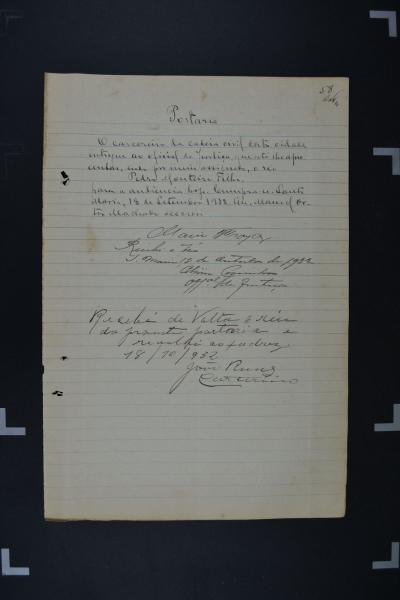 58
Portaria
O carcereiro da cadeia civil desta cidade
entregue ao oficial de Justiça, que este lhe apre
sentar, indo por mim assinado, o reu
Pedro Monteiro Filho,
para a audiencia hoje. Cumpra-se. Santa
Maria, 18 de Setembro 1932. Eu,
Machado escrivi
Recebi e
S. Maria 18 de Outubro de 1932
de Justiça
Recebi de Volta o réu
da prezente portaria e
recolhi ao xadrez
18/10/932
João
Carcereiro